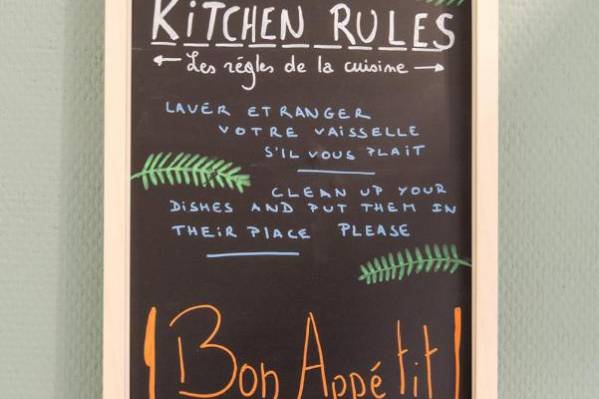 KITCHEN RULES
← Les régles de la cuisine →
LAVER ET RANGER
VOTRE VAISSELLE
S'IL VOUS PLAIT
CLEAN UP YOUR
DISHES AND PUT THEM IN
THEIR PLACE PLEASE
Bon Appétit